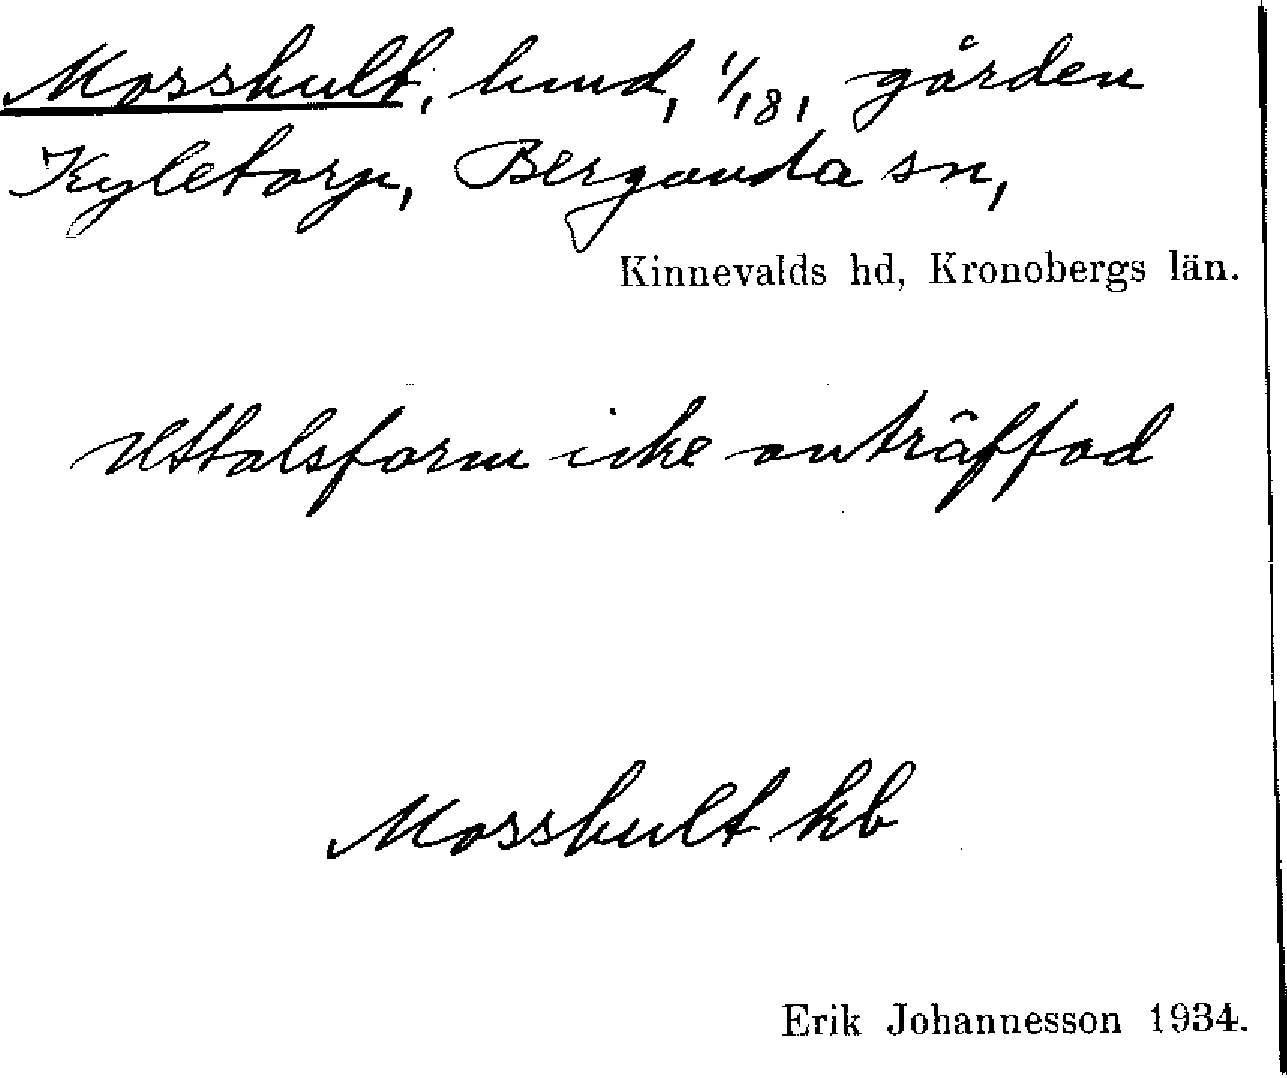 Mosshult, lund, 1/18, gården
Kyletorp, Bergunda sn,
Kinnevalds hd, Kronobergs län.
Uttalsform icke anträffad
Mosshult kb
Erik Johannesson 1934.